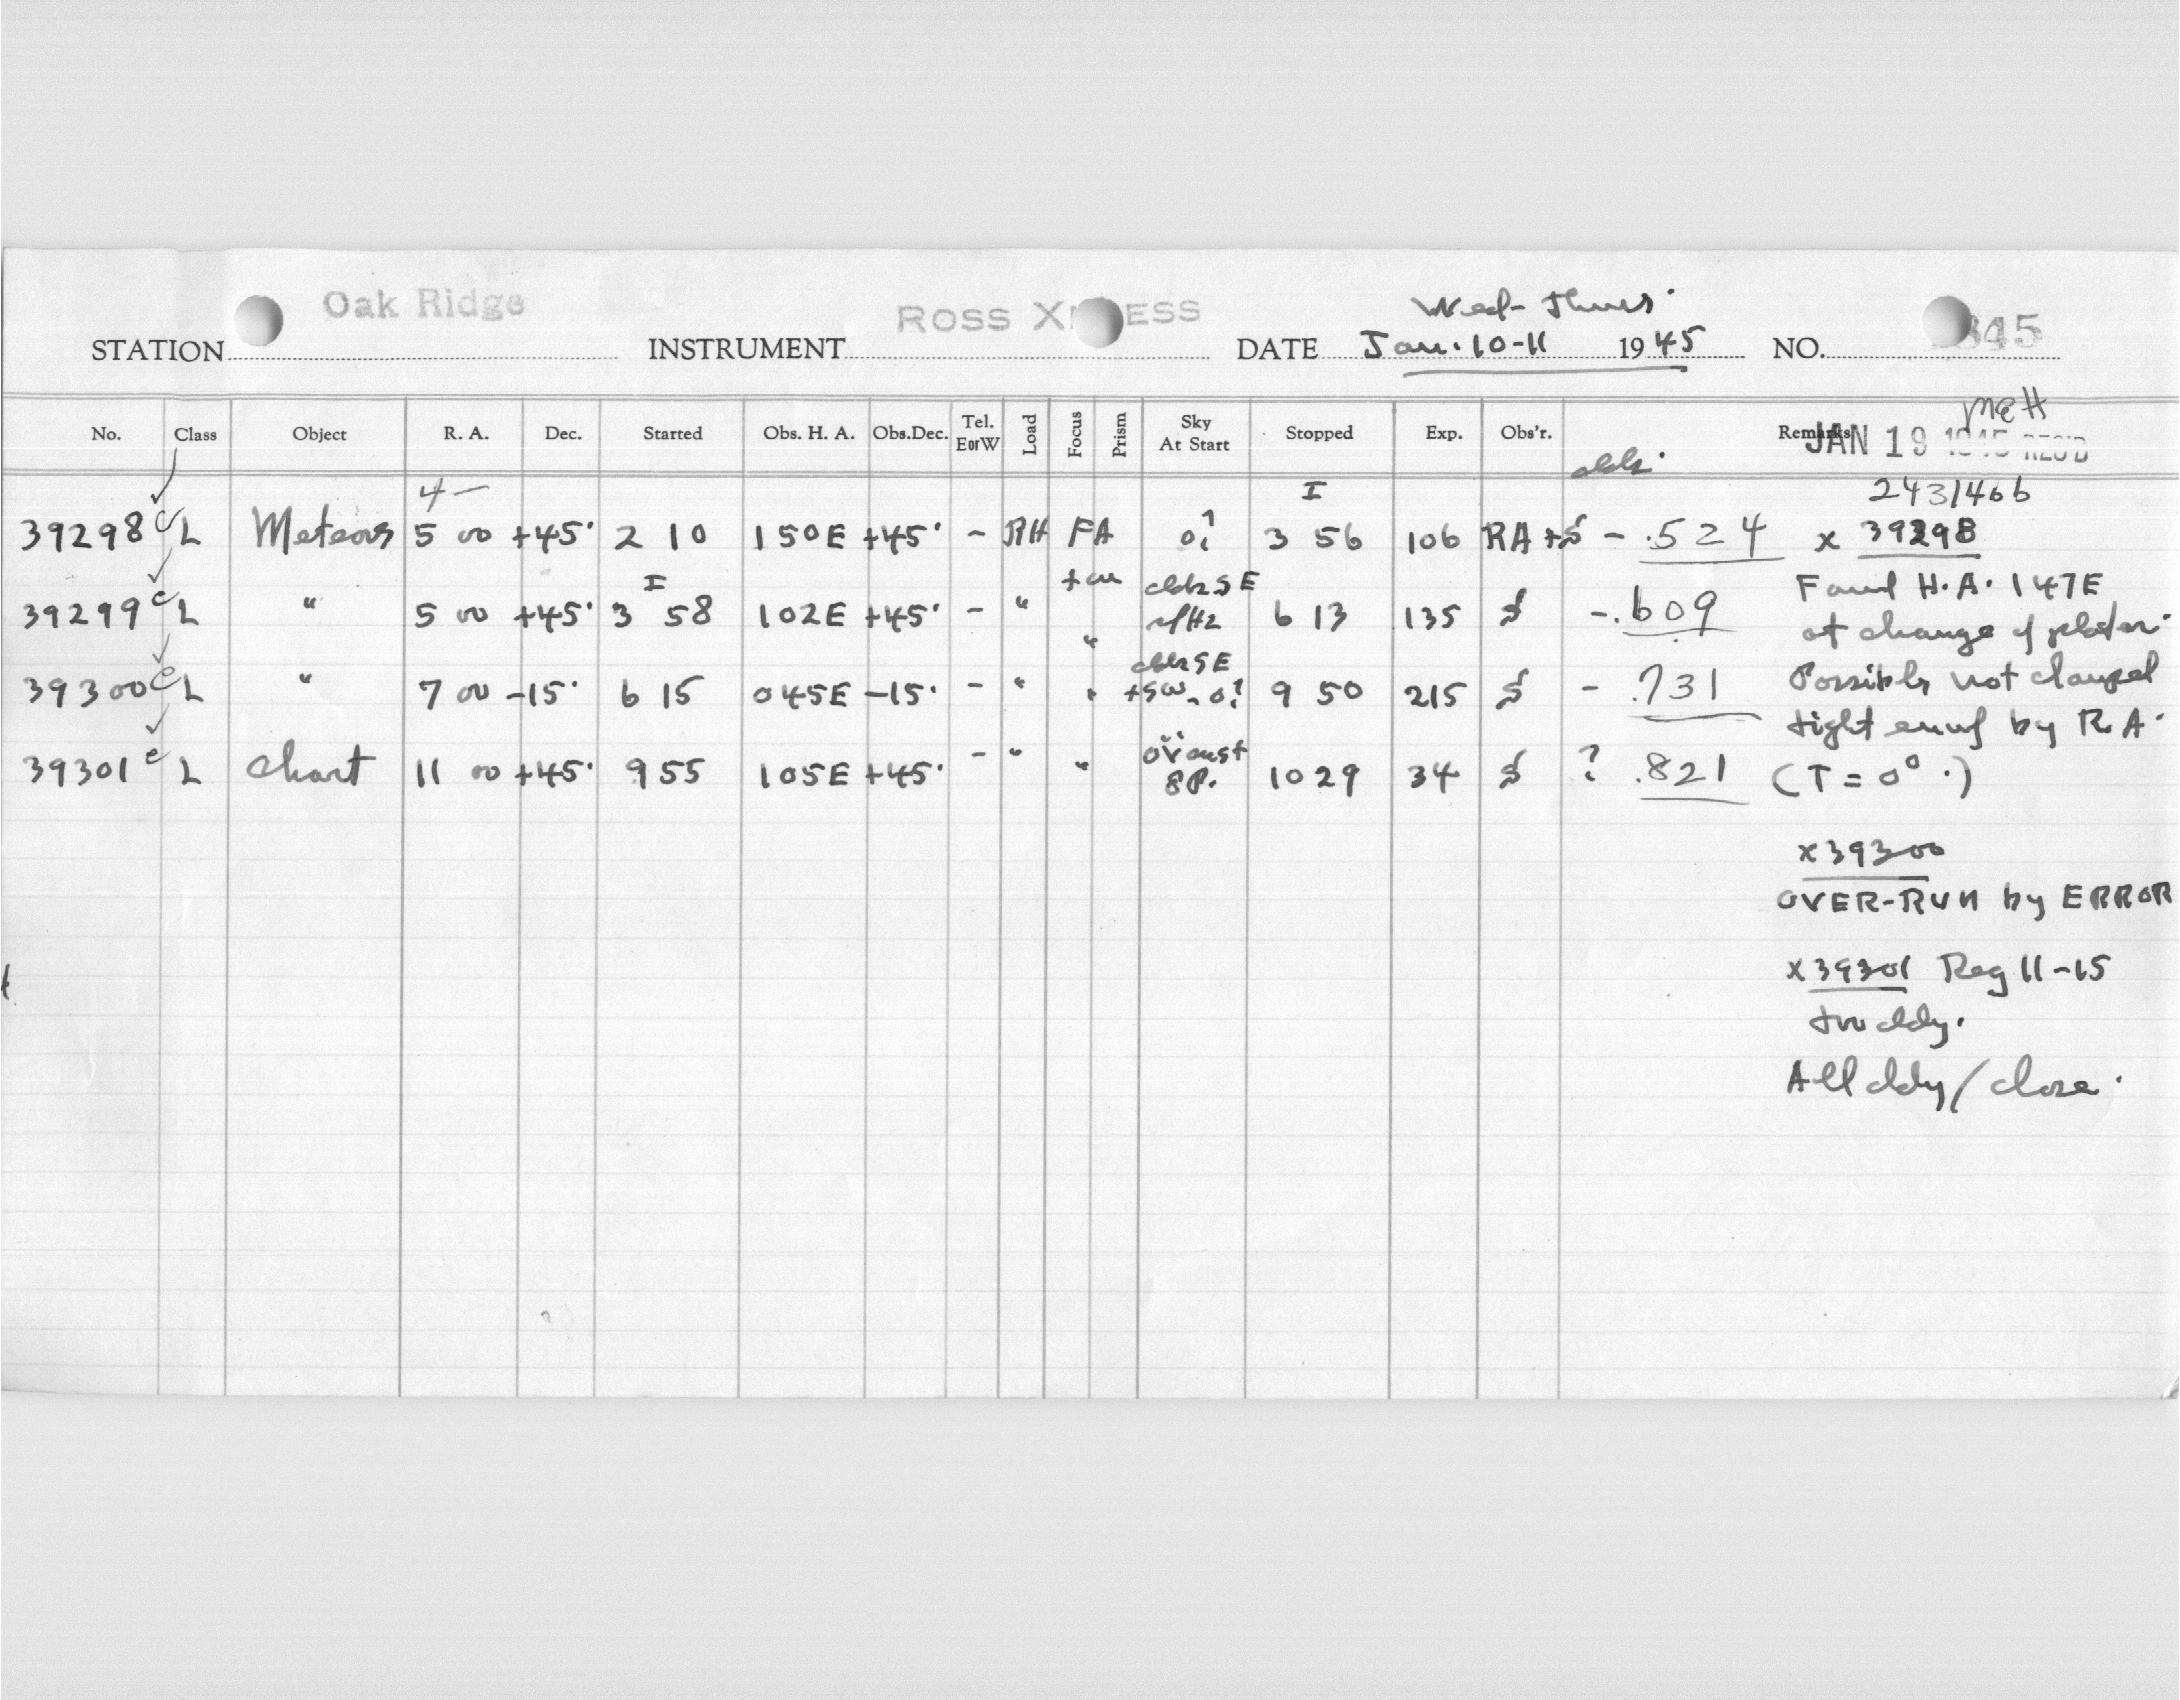 Oak Ridge ROSS X ESS Wed - Thurs.
STATION INSTRUMENT DATE Jan. 10-11 1945 NO. 345
MEH
No. Class Object R. A. Dec. Started Obs. H. A. Obs.Dec. Tel. E or W Load Focus Prism Sky At Start Stopped Exp. Obs'r. Remarks
JAN 19 1945 REC'D
4 — I 2431466
39298 c L Meteors 5 00 +45° 2 10 150E +45° - RH FA 0? 3 56 106 RA + S - .524 x 39298
39299 c L " 5 00 +45° 3 58 102E +45° - " SE 6 13 135 S - .609 Found H.A. 147E
at change of
39300 c L " 7 00 -15° 6 15 045E -15° - " " SE +SW 0? 9 50 215 S - .731 Possibly not clamped
tight enuf by R.A.
39301 c L Chart 11 00 +45° 9 55 105E +45° - " " 8P. 10 29 34 S ? .821 (T = 0°.)
x 39300
OVER-RUN by ERROR
x 39301 Reg 11-15
too cldy.
All cldy / close.